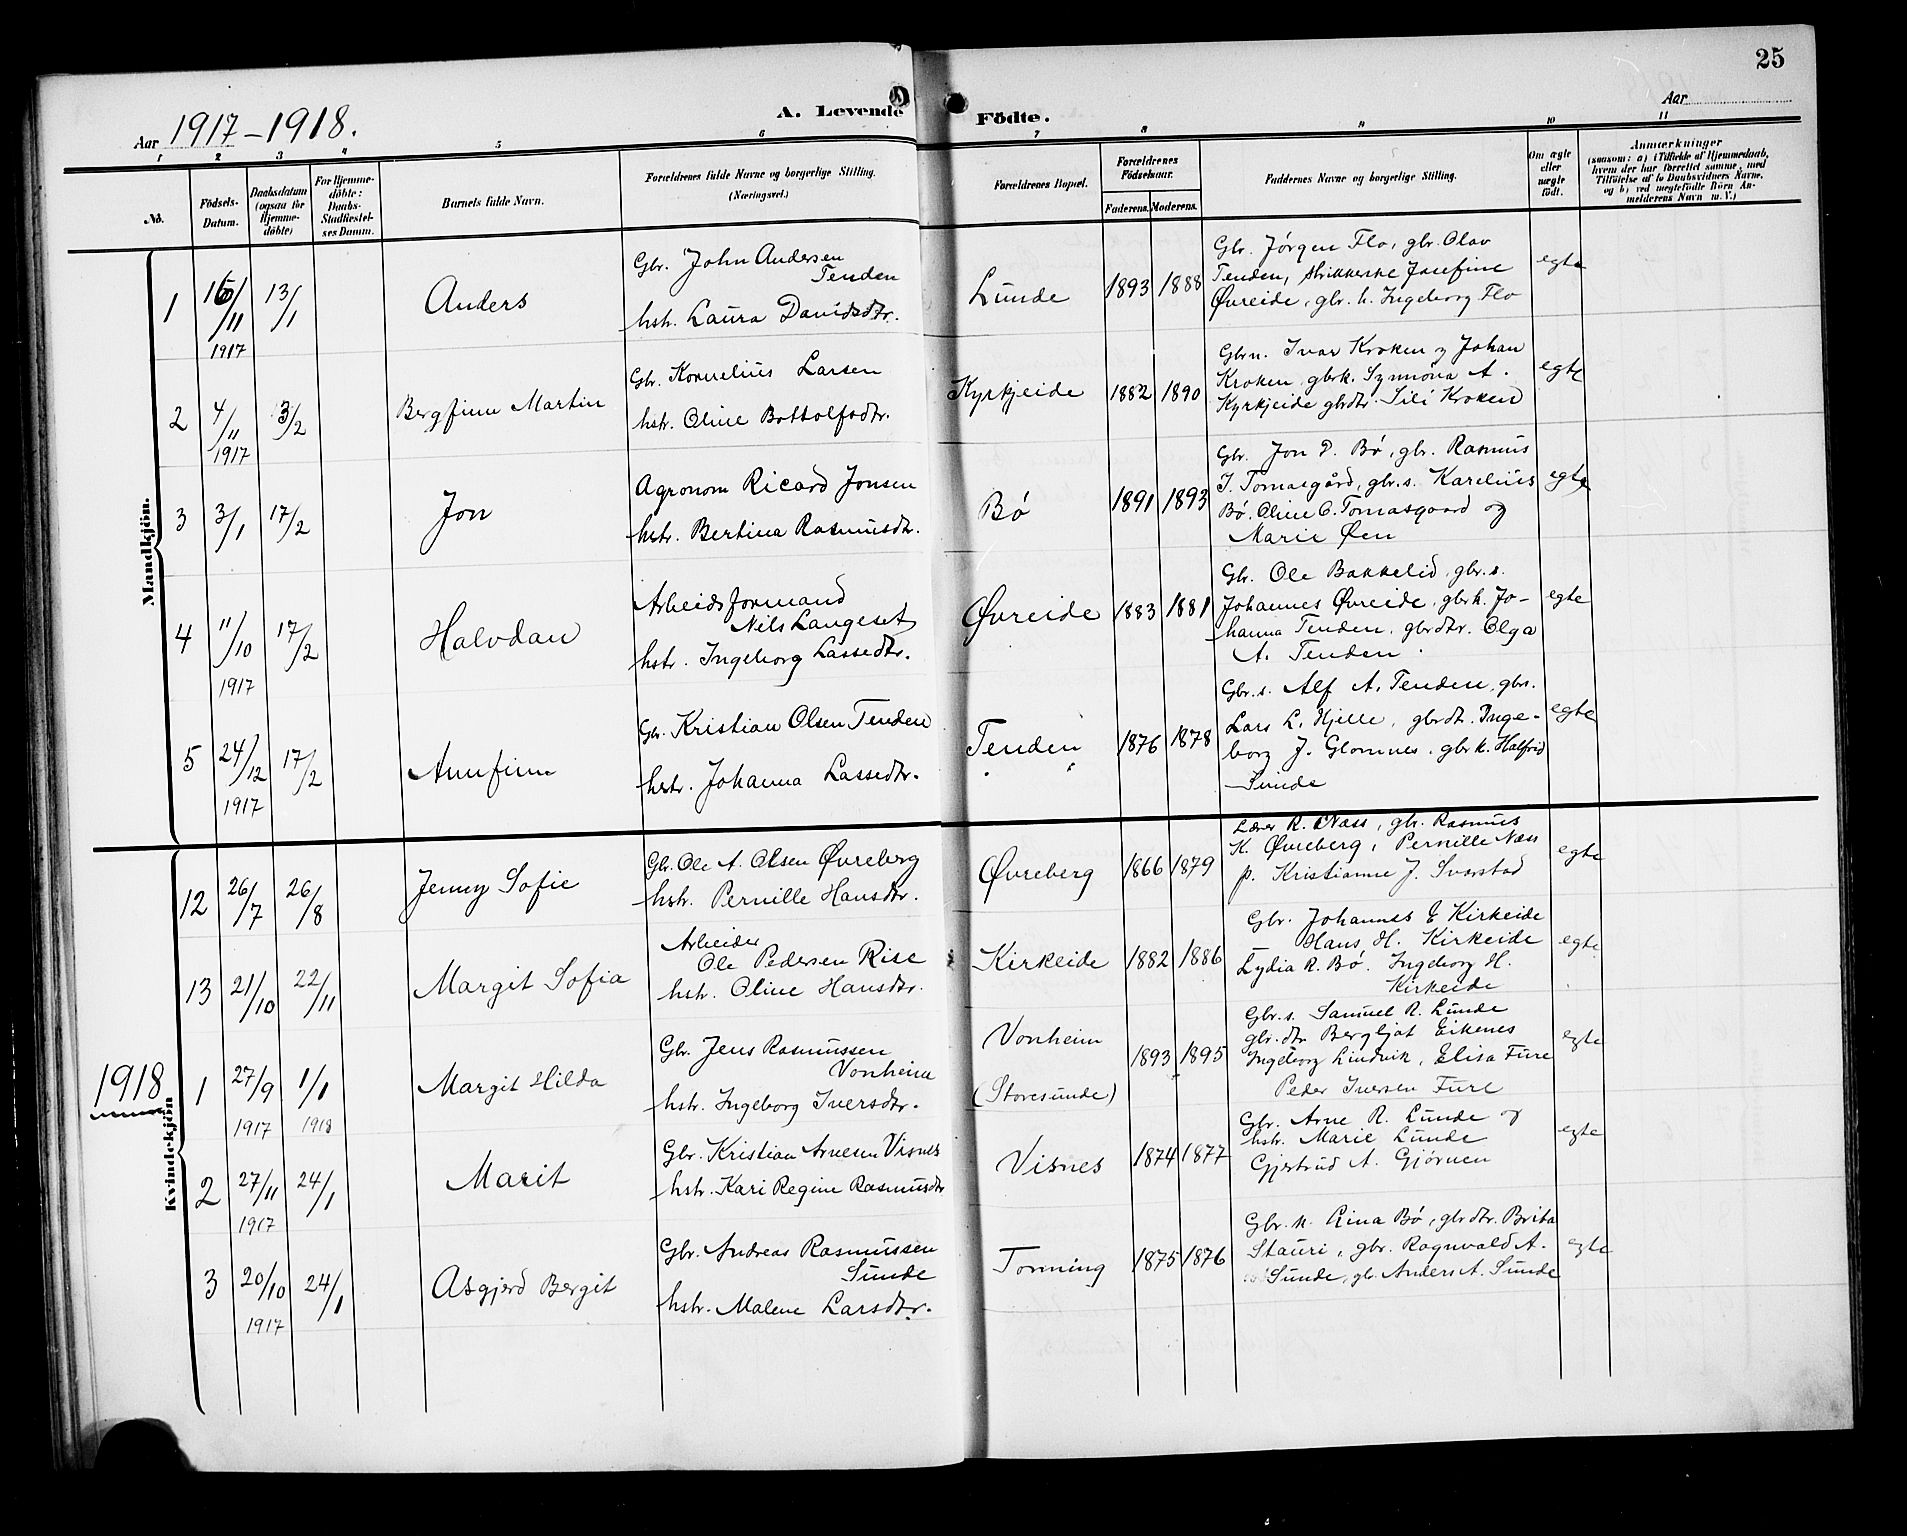 25
Aar 1917-1918.
A. Levende Födte.
Aar
1 2 3 4 5 6 7 8 9 10 11
No.
Födsels-Datum.
Daabsdatum (ogsaa for Hjemme-döbte)
For Hjemme-döbte: Daabs-Stadfæstel-ses Datum.
Barnets fulde Navn.
Forældrenes fulde Navne og borgerlige Stilling.
(Næringsvei.)
Forældrenes Bopæl.
Forældrenes Födselsaar.
Faderens. Moderens.
Faddernes Navne og borgerlige Stilling.
Om ægte eller uægte födt.
Anmærkninger
(saasom: a) i Tilfælde af Hjemmedaab,
hvem der har forrettet samme, med
Tilföielse af to Daabsvidners Navne,
og b) ved uægtefödte Börn An-
melderens Navn m. V.)
Mandkjön.
1 16/11 1917 13/1 Anders
Gbr. John Andersen
Tenden
hstr. Laura Davidsdtr.
Lunde 1893 1888
Gbr. Jørgen Flo, gbr. Olav
Tenden, strikkerske Josefine
Øvreide, gbr. h. Ingeborg Flo
egte
2 4/11 1917 3/2 Bergfinn Martin
Gbr. Kornelius Larsen
hstr. Oline Bottolfsdtr.
Kyrkjeide 1882 1890
Gbrn. Ivar Kroken og Johan
Kroken, gbrk. Synnøva A.
Kyrkjeide gbrdtr. Sili Kroken
egte
3 3/1 17/2 Jon
Agronom Ricard Jonsen
hstr. Bertina Rasmusdtr.
Bø 1891 1893
Gbr. Jon P. Bø, gbr. Rasmus
J. Tomasgård, gbr.s. Karelius
Bø, Oline O. Tomasgaard og
Marie Øen
egte
4 11/10 1917 17/2 Halvdan
Arbeidsformand
Nils Langeset
hstr. Ingeborg Lassedtr.
Øvreide 1883 1881
Gbr. Ole Bakkelid, gbr.s.
Johannes Øvreide, gbrk. Jo-
hanna Tenden, gbrdtr. Olga
A. Tenden.
egte
5 24/12 1917 17/2 Arnfinn
Gbr. Kristian Olsen Tenden
hstr. Johanna Lassedtr.
Tenden 1876 1878
Gbr.s. Alf A. Tenden, gbr.
Lars L. Hjelle, gbrdtr. Inge-
borg J. Glomnes, gbrk. Halfrid
Sunde
egte
Kvindekjön
12 26/7 26/8 Jenny Sofie
Gbr. Ole A. Olsen Øvreberg
hstr. Pernille Hansdtr.
Øvreberg 1866 1879
Lærer R. Næss, gbr. Rasmus
K. Øvreberg, Pernille Næss
p. Kristianne J. Svarstad
egte
13 21/10 22/11 Margit Sofia
Arbeider
Ole Pedersen Rise
hstr. Oline Hansdtr.
Kirkeide 1882 1886
Gbr. Johannes E Kirkeide
Hans H. Kirkeide
Lydia R. Bø. Ingeborg H.
Kirkeide
egte
1918
1 27/9 1917 1/1 1918 Margit Hilda
Gbr. Jens Rasmussen
Vonheim
hstr. Ingeborg Iversdtr.
Vonheim
(Storesunde)
1893 1895
Gbr.s. Samuel R. Lunde
gbr.dtr Bergljot Eikenes
Ingeborg Lindvik, Elisa Fure
Peder Iversen Fure
egte
2 27/11 1917 24/1 Marit
Gbr. Kristian Arnesen Visnes
hstr. Kari Regine Rasmusdtr
Visnes 1874 1877
Gbr. Arne R. Lunde og
hstr. Marie Lunde
Gjertrud A. Gjørven
egte
3 20/10 1917 24/1 Asgjerd Bergit
Gbr. Andreas Rasmussen
Sunde
hstr. Malene Larsdtr.
Torming 1875 1876
Gbr. k. Lina Bø, gbrdtr. Brita
Stauri, gbr. Ragnvald A.
Sunde, gb. Anders A. Sunde
egte